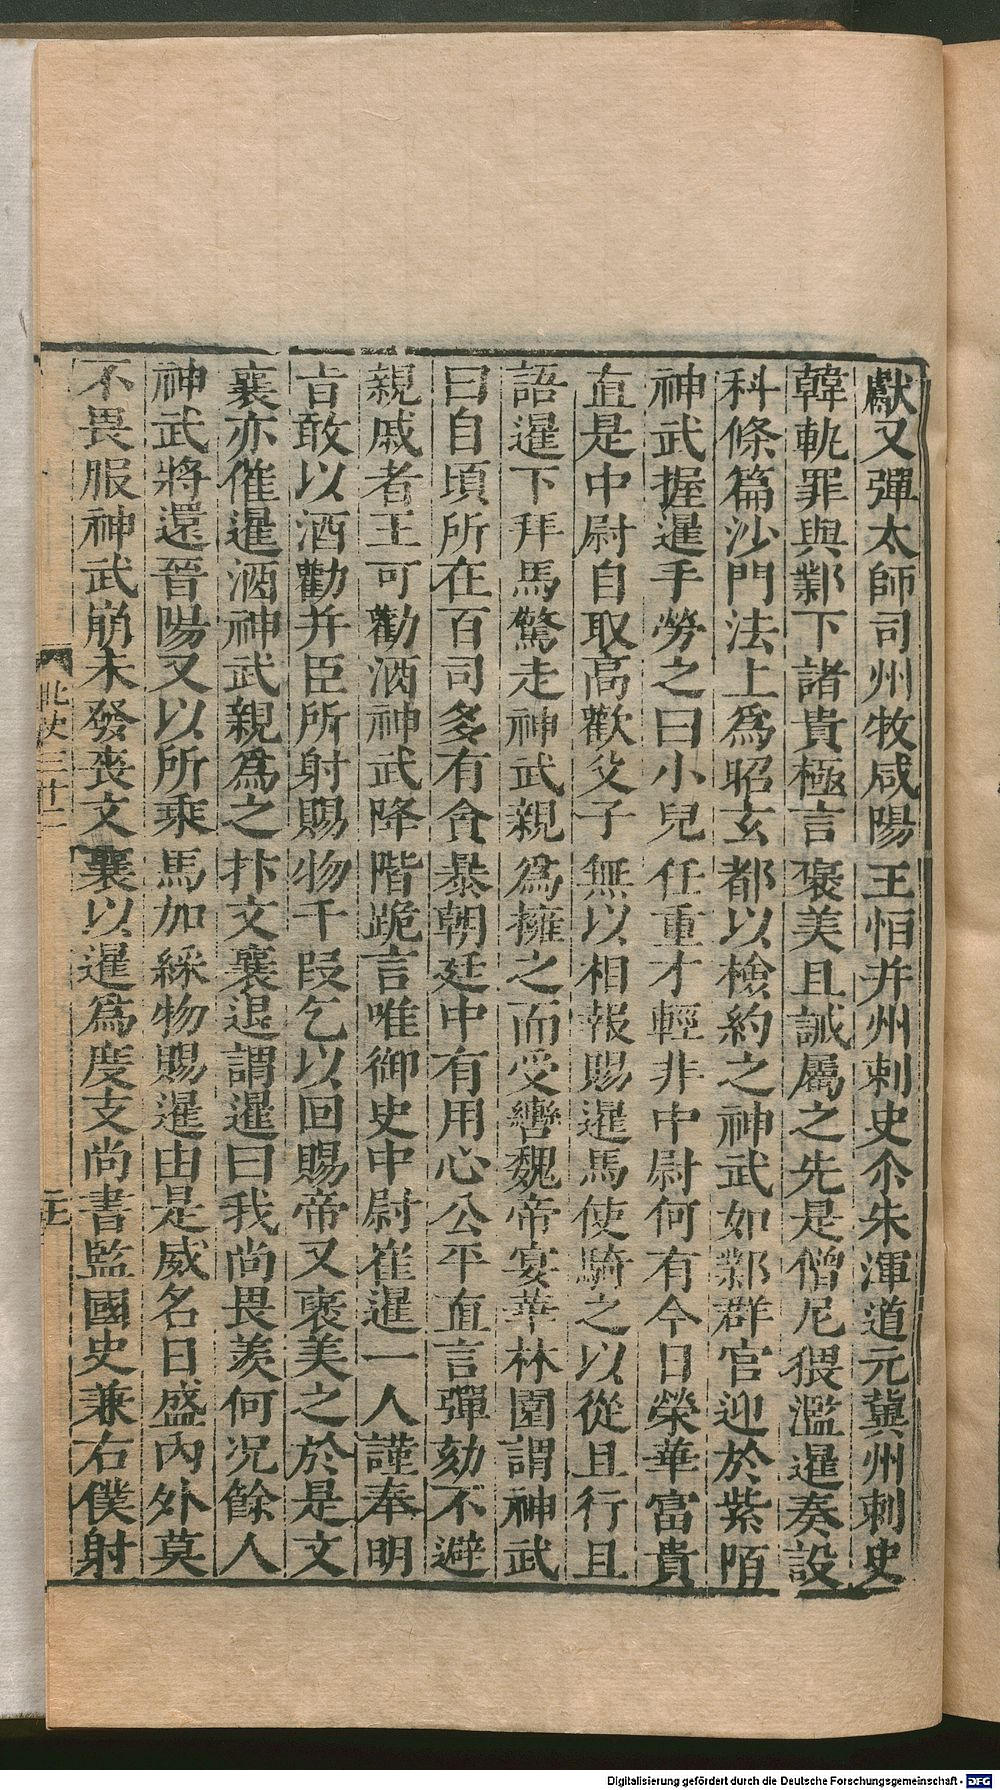 獻又彈太師司州牧咸陽王怛并州刺史尒朱渾道元冀州刺史
韓軌罪與鄴下諸貴極言褒美且誡屬之先是僧尼猥濫暹奏設
科條篇沙門法上爲昭玄都以檢約之神武如鄴群官迎於紫陌
神武握暹手勞之曰小兒任重才輕非中尉何有今日榮華富貴
直是中尉自取高歡父子無以相報賜暹馬使騎之以從且行且
語暹下拜馬驚走神武親爲擁之而受轡魏帝宴華林園謂神武
曰自頃所在百司多有貪暴朝廷中有用心公平直言彈劾不避
親戚者王可勸酒神武降階跪言唯御史中尉崔暹一人謹奉明
㫖敢以酒勸并臣所射賜物千段乞以回賜帝又褒美之於是文
襄亦催暹酒神武親爲之抃文襄退謂暹曰我尚畏羨何况餘人
神武將還晉陽又以所乘馬加綵物賜暹由是威名日盛內外莫
不畏服神武崩未發喪文襄以暹爲度支尚書監國史兼右僕射
北史三十二
Digitalisierung gefördert durch die Deutsche Forschungsgemeinschaft - DFG